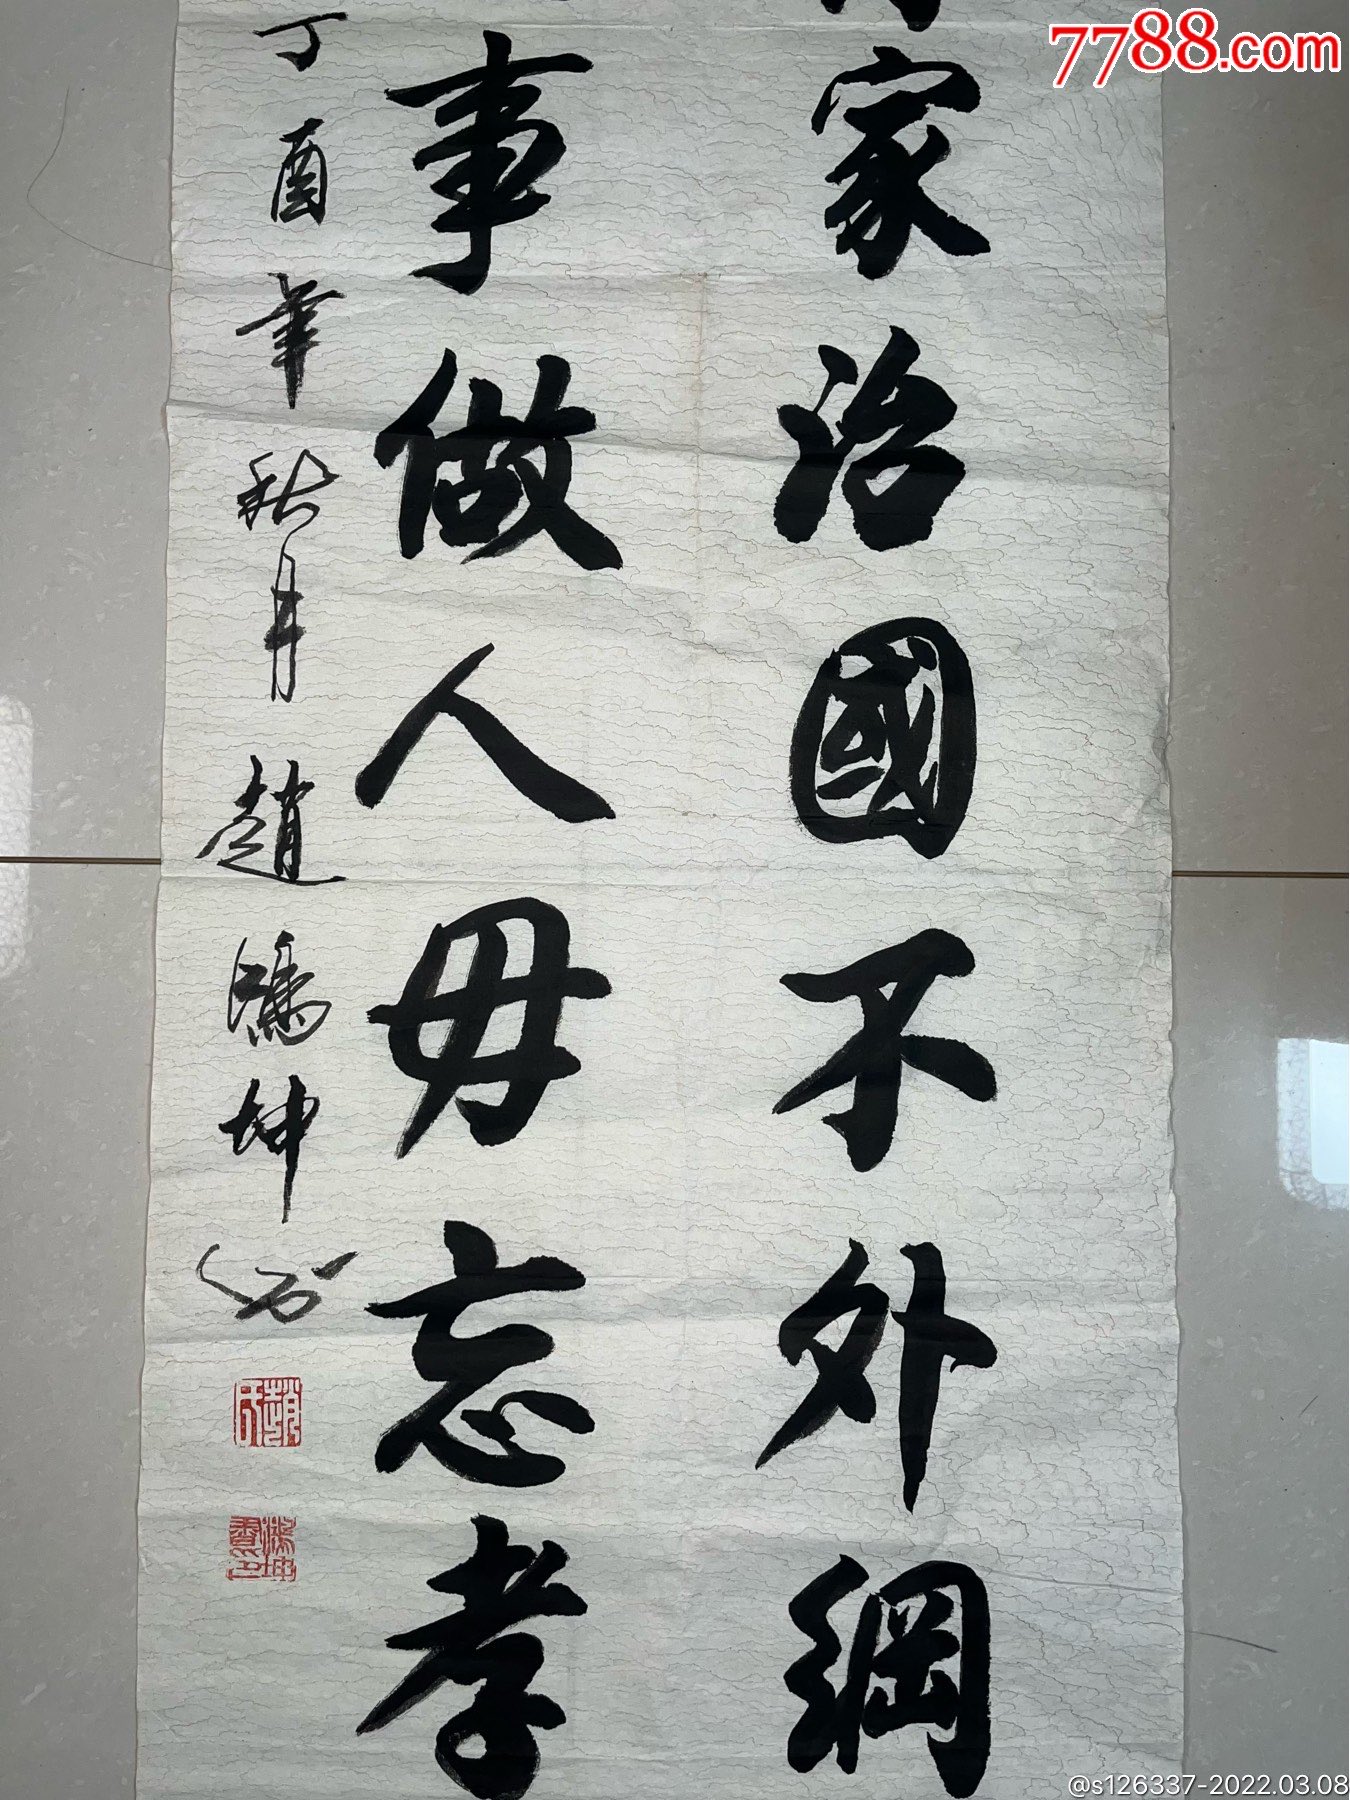 家治國不外綱
事做人毋忘孝
丁酉年秋月趙鴻坤書
趙氏
鴻坤書印
7788.com
@s126337-2022.03.08